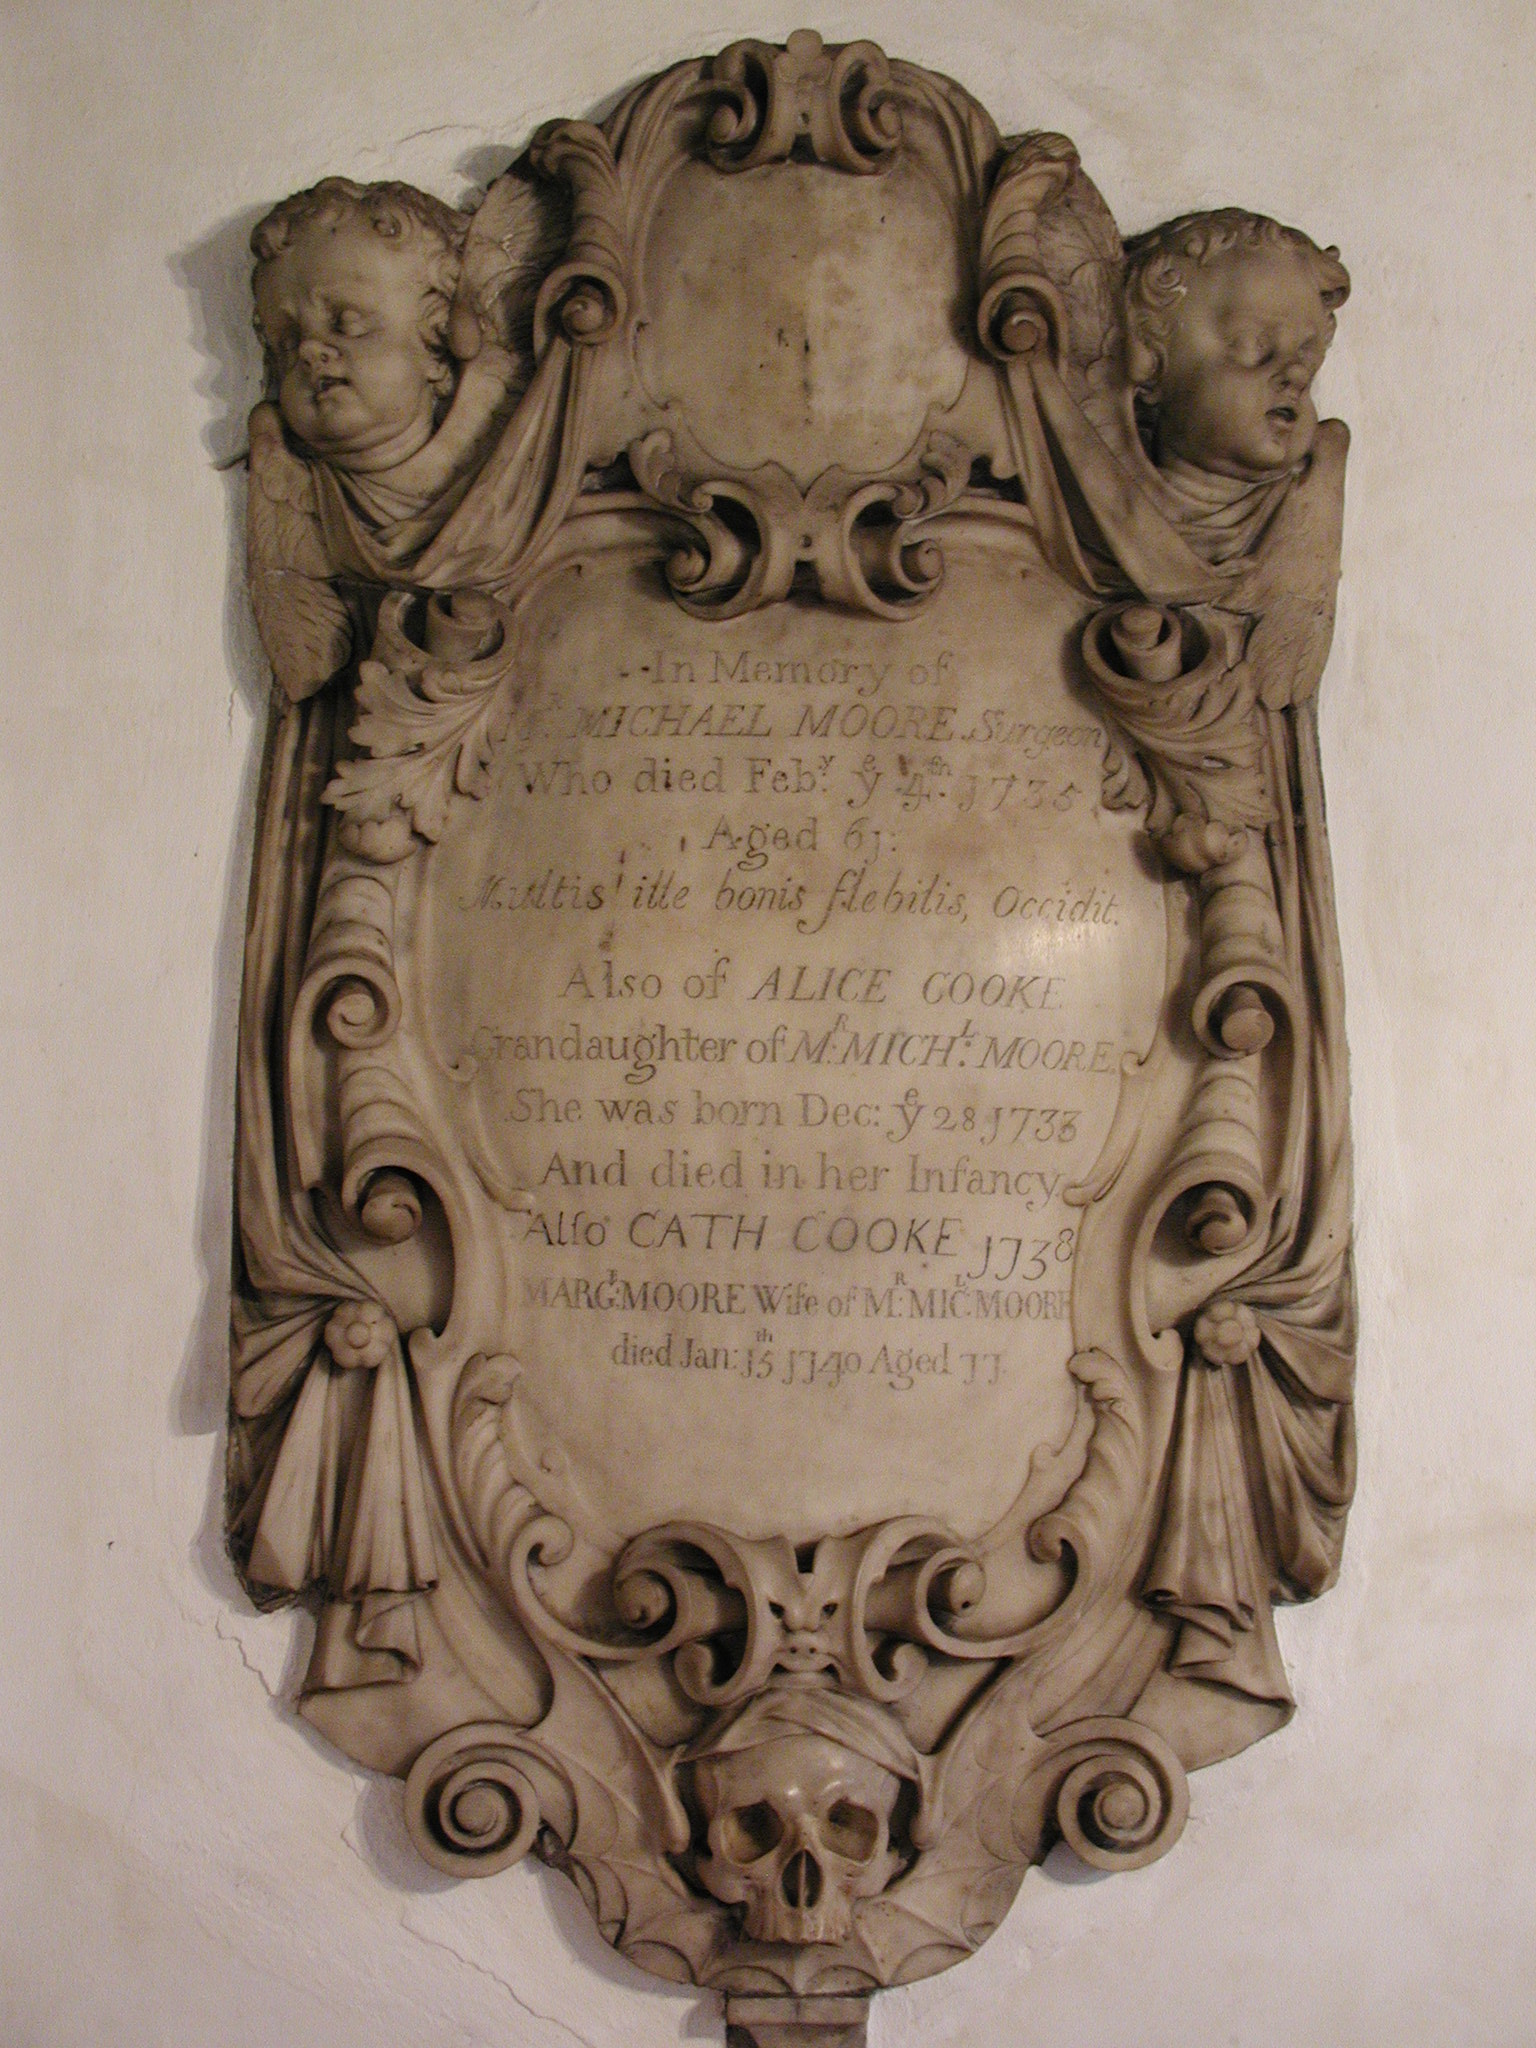 In Memory of
Mr. MICHAEL MOORE Surgeon
Who died Feby. ye 4th. 1735
Aged 61:
Multis ille bonis flebilis, Occidit.
Also of ALICE COOKE
Grandaughter of MR: MICHL: MOORE.
She was born Dec: ye 28 1733
And died in her Infancy
Alſo CATH COOKE 1738
MARGT: MOORE Wife of MR: MICL: MOORE
died Jan: 15th 1740 Aged 77.